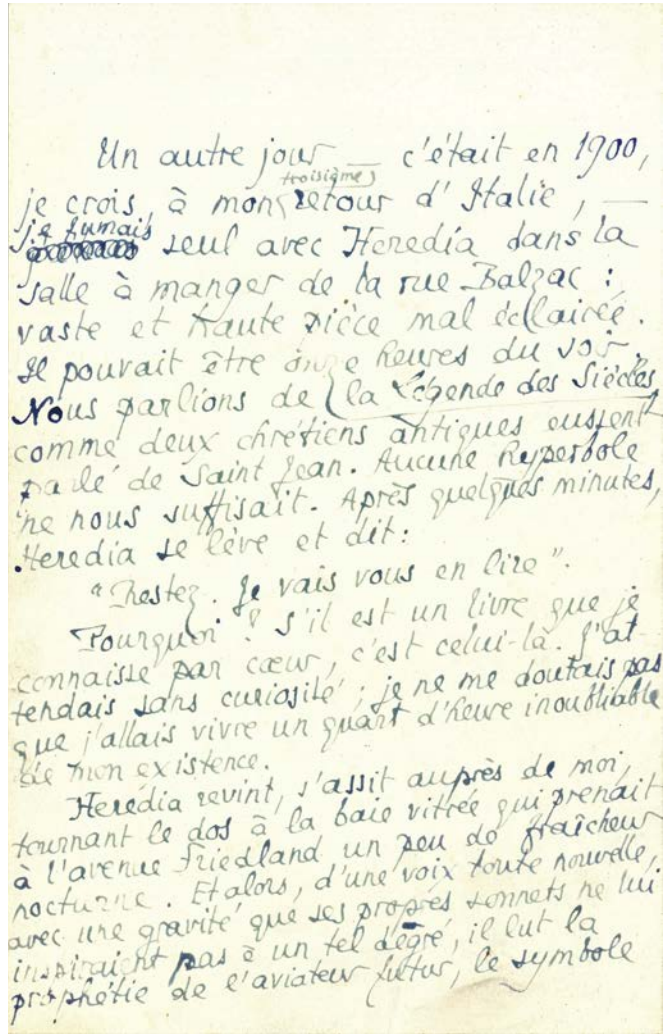 Un autre jour — c'était en 1900,
je crois, à mon troisième retour d'Italie, —
je fumais seul avec Heredia dans la
salle à manger de la rue Balzac :
vaste et haute pièce mal éclairée.
Il pouvait être onze heures du soir.
Nous parlions de la Légende des Siècles
comme deux chrétiens antiques eussent
parlé de Saint Jean. Aucune hyperbole
ne nous suffisait. Après quelques minutes,
Heredia se lève et dit :
"Restez. Je vais vous en lire".
Pourquoi ? S'il est un livre que je
connaisse par cœur, c'est celui-là. J'at-
tendais sans curiosité ; je ne me doutais pas
que j'allais vivre un quart d'heure inoubliable
de mon existence.
Heredia revint, s'assit auprès de moi,
tournant le dos à la baie vitrée qui prenait
à l'avenue Friedland un peu de fraîcheur
nocturne. Et alors, d'une voix toute nouvelle,
avec une gravité que ses propres sonnets ne lui
inspiraient pas à un tel degré, il lut la
prophétie de l'aviateur futur, le symbole